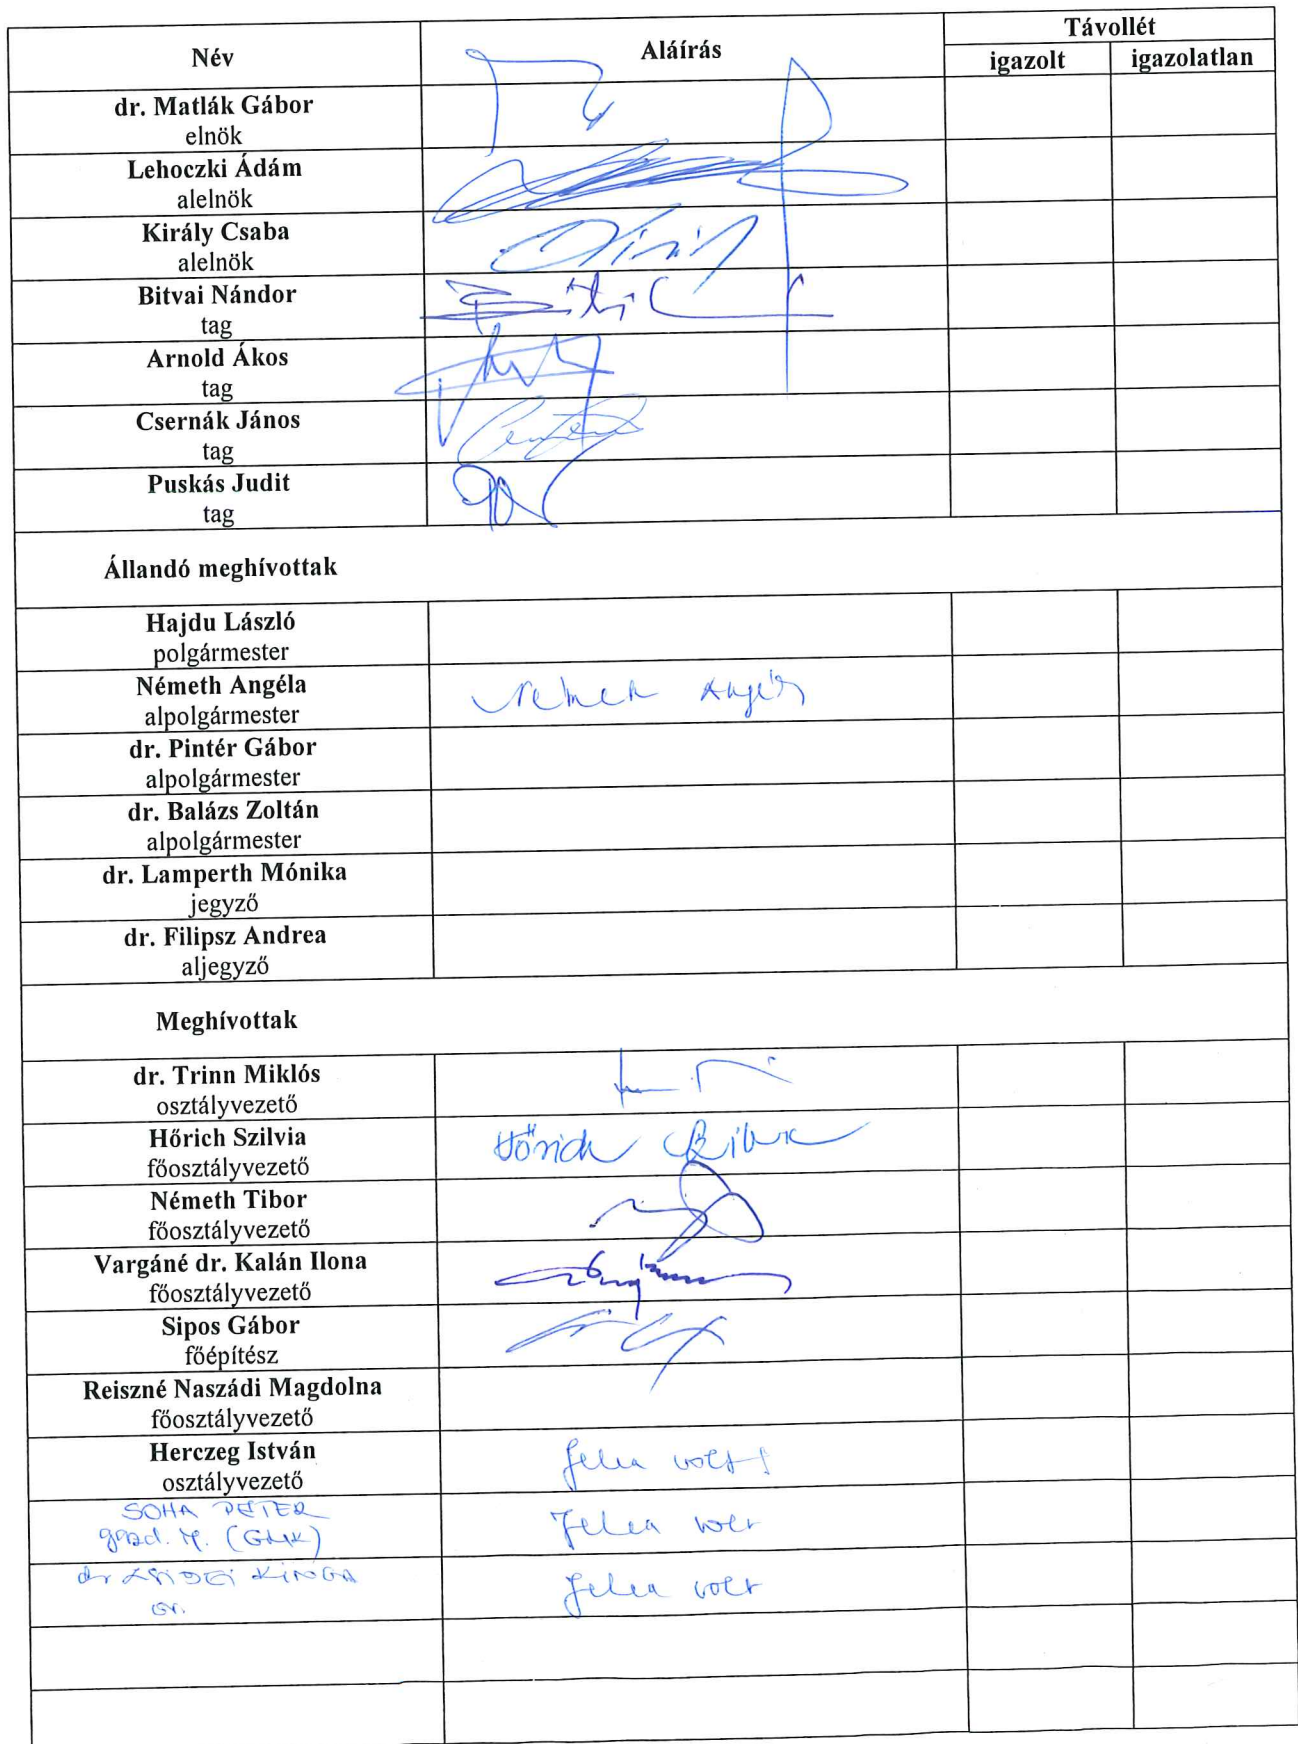 Név Aláírás Távollét
igazolt igazolatlan
dr. Matlák Gábor
elnök
Lehoczki Ádám
alelnök
Király Csaba
alelnök
Bitvai Nándor
tag
Arnold Ákos
tag
Csernák János
tag
Puskás Judit
tag
Állandó meghívottak
Hajdu László
polgármester
Németh Angéla
alpolgármester
dr. Pintér Gábor
alpolgármester
dr. Balázs Zoltán
alpolgármester
dr. Lamperth Mónika
jegyző
dr. Filipsz Andrea
aljegyző
Meghívottak
dr. Trinn Miklós
osztályvezető
Hőrich Szilvia Hőrich
főosztályvezető
Németh Tibor
főosztályvezető
Vargáné dr. Kalán Ilona
főosztályvezető
Sipos Gábor
főépítész
Reiszné Naszádi Magdolna
főosztályvezető
Herczeg István Jelen volt
osztályvezető
SOHA PÉTER Jelen volt
(GMK)
dr KINGA Jelen volt